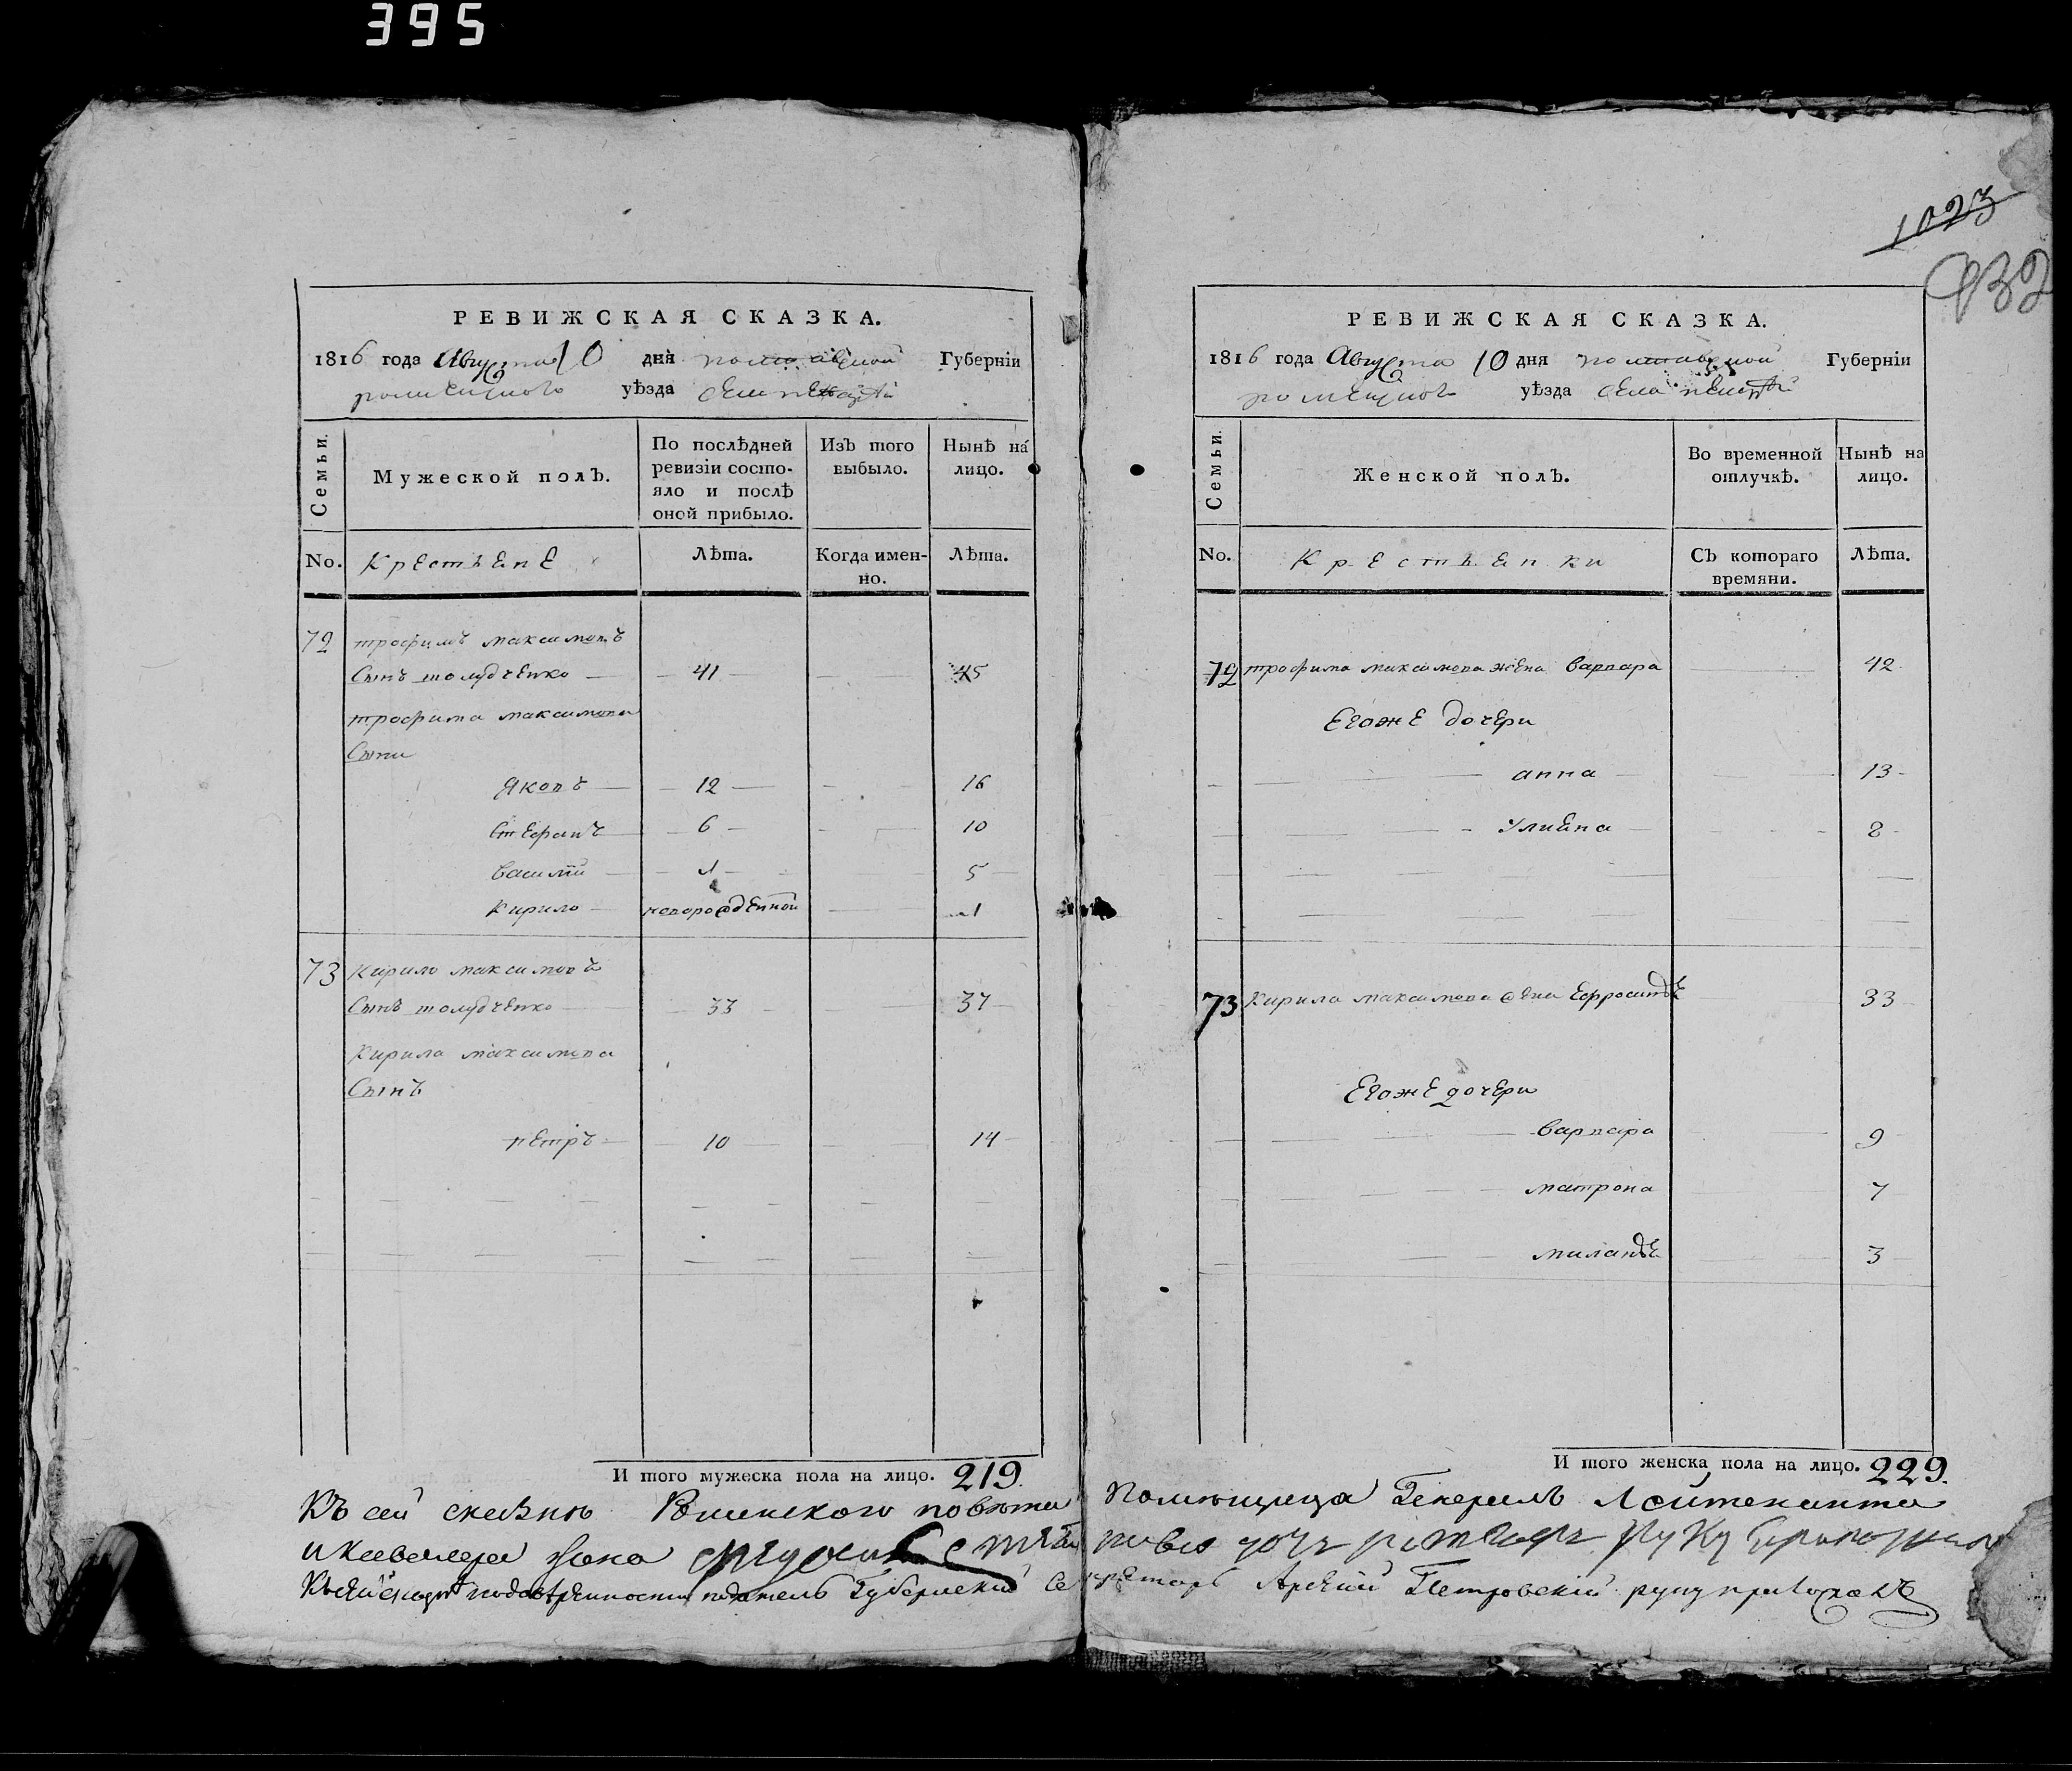 395
РЕВИЖСКАЯ СКАЗКА.
1816 года Августа 10 дня полтавской Губерніи
роменского уѣзда села
Семьи.
Мужеской полъ.
По послѣдней ревизіи состояло и послѣ оной прибыло.
Изъ того выбыло.
Нынѣ на лицо.
No. Крестьяне
Лѣта.
Когда именно.
Лѣта.
72 трофимъ максимовъ
Сынъ толубченко 41 45
трофима максимова
Сыни
Яковъ 12 16
Стефанъ 6 10
Василій 1 5
Кирило новорожденной 1
73 Кирило максимовъ
Сынъ толубченко 33 37
Кирила максимова
Сынъ
петръ 10 14
И того мужеска пола на лицо. 219
1023
932
РЕВИЖСКАЯ СКАЗКА.
1816 года Августа 10 дня полтавской Губерніи
роменского уѣзда села
Семьи.
Женской полъ.
Во временной отлучкѣ.
Нынѣ на лицо.
No. Крестьянки
Съ котораго времяни.
Лѣта.
72 трофима максимова жена варвара 42
Егоже дочери
анна 13
Улияна 8
73 Кирила максимова жена Ефросинія 33
Егоже дочери
варвара 9
матрона 7
миланія 3
И того женска пола на лицо. 229.
Къ сей сказке Роменского повета Помещица Генералъ Лейтенанта
и Кавалера дочь руку приложила
подател Губернскій Секретарь Арсеній Петровскій руку приложилъ